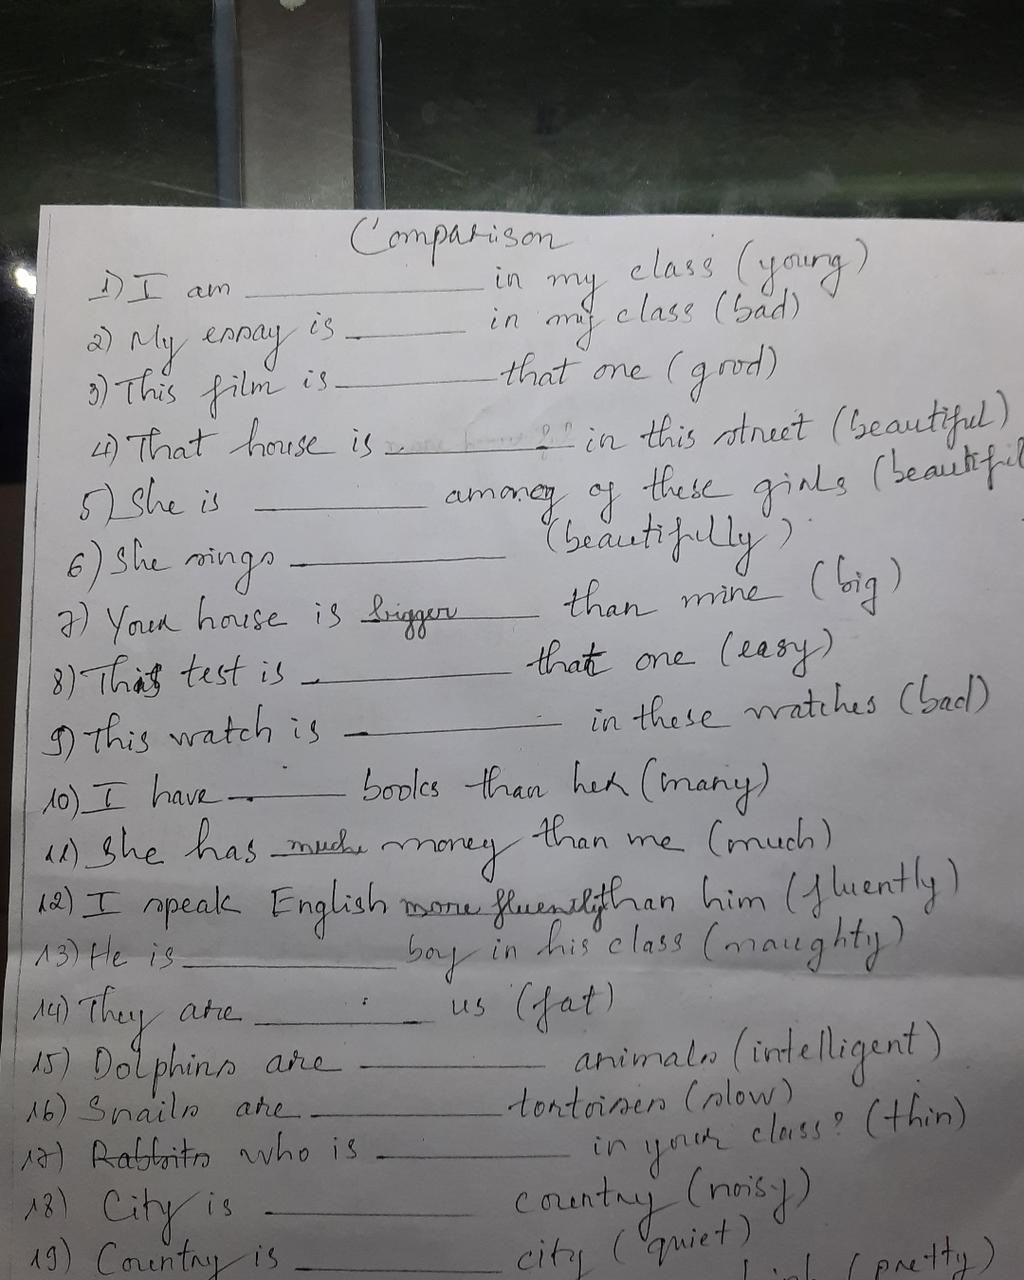 Comparison
1) I am ________ in my class (young)
2) My essay is ________ in my class (bad)
3) This film is ________ that one (good)
4) That house is ________ in this street (beautiful)
5) She is ________ among of these girls (beautiful
6) She sings ________ (beautifully)
7) Your house is bigger than mine (big)
8) This test is ________ that one (easy)
9) This watch is ________ in these watches (bad)
10) I have ________ books than her (many)
11) She has much money than me (much)
12) I speak English more fluently than him (fluently)
13) He is ________ boy in his class (naughty)
14) They are ________ us (fat)
15) Dolphins are ________ animals (intelligent)
16) Snails are ________ tortoises (slow)
17) Rabbits who is ________ in your class? (thin)
18) City is ________ country (noisy)
19) Country is ________ city (quiet)
(pretty)